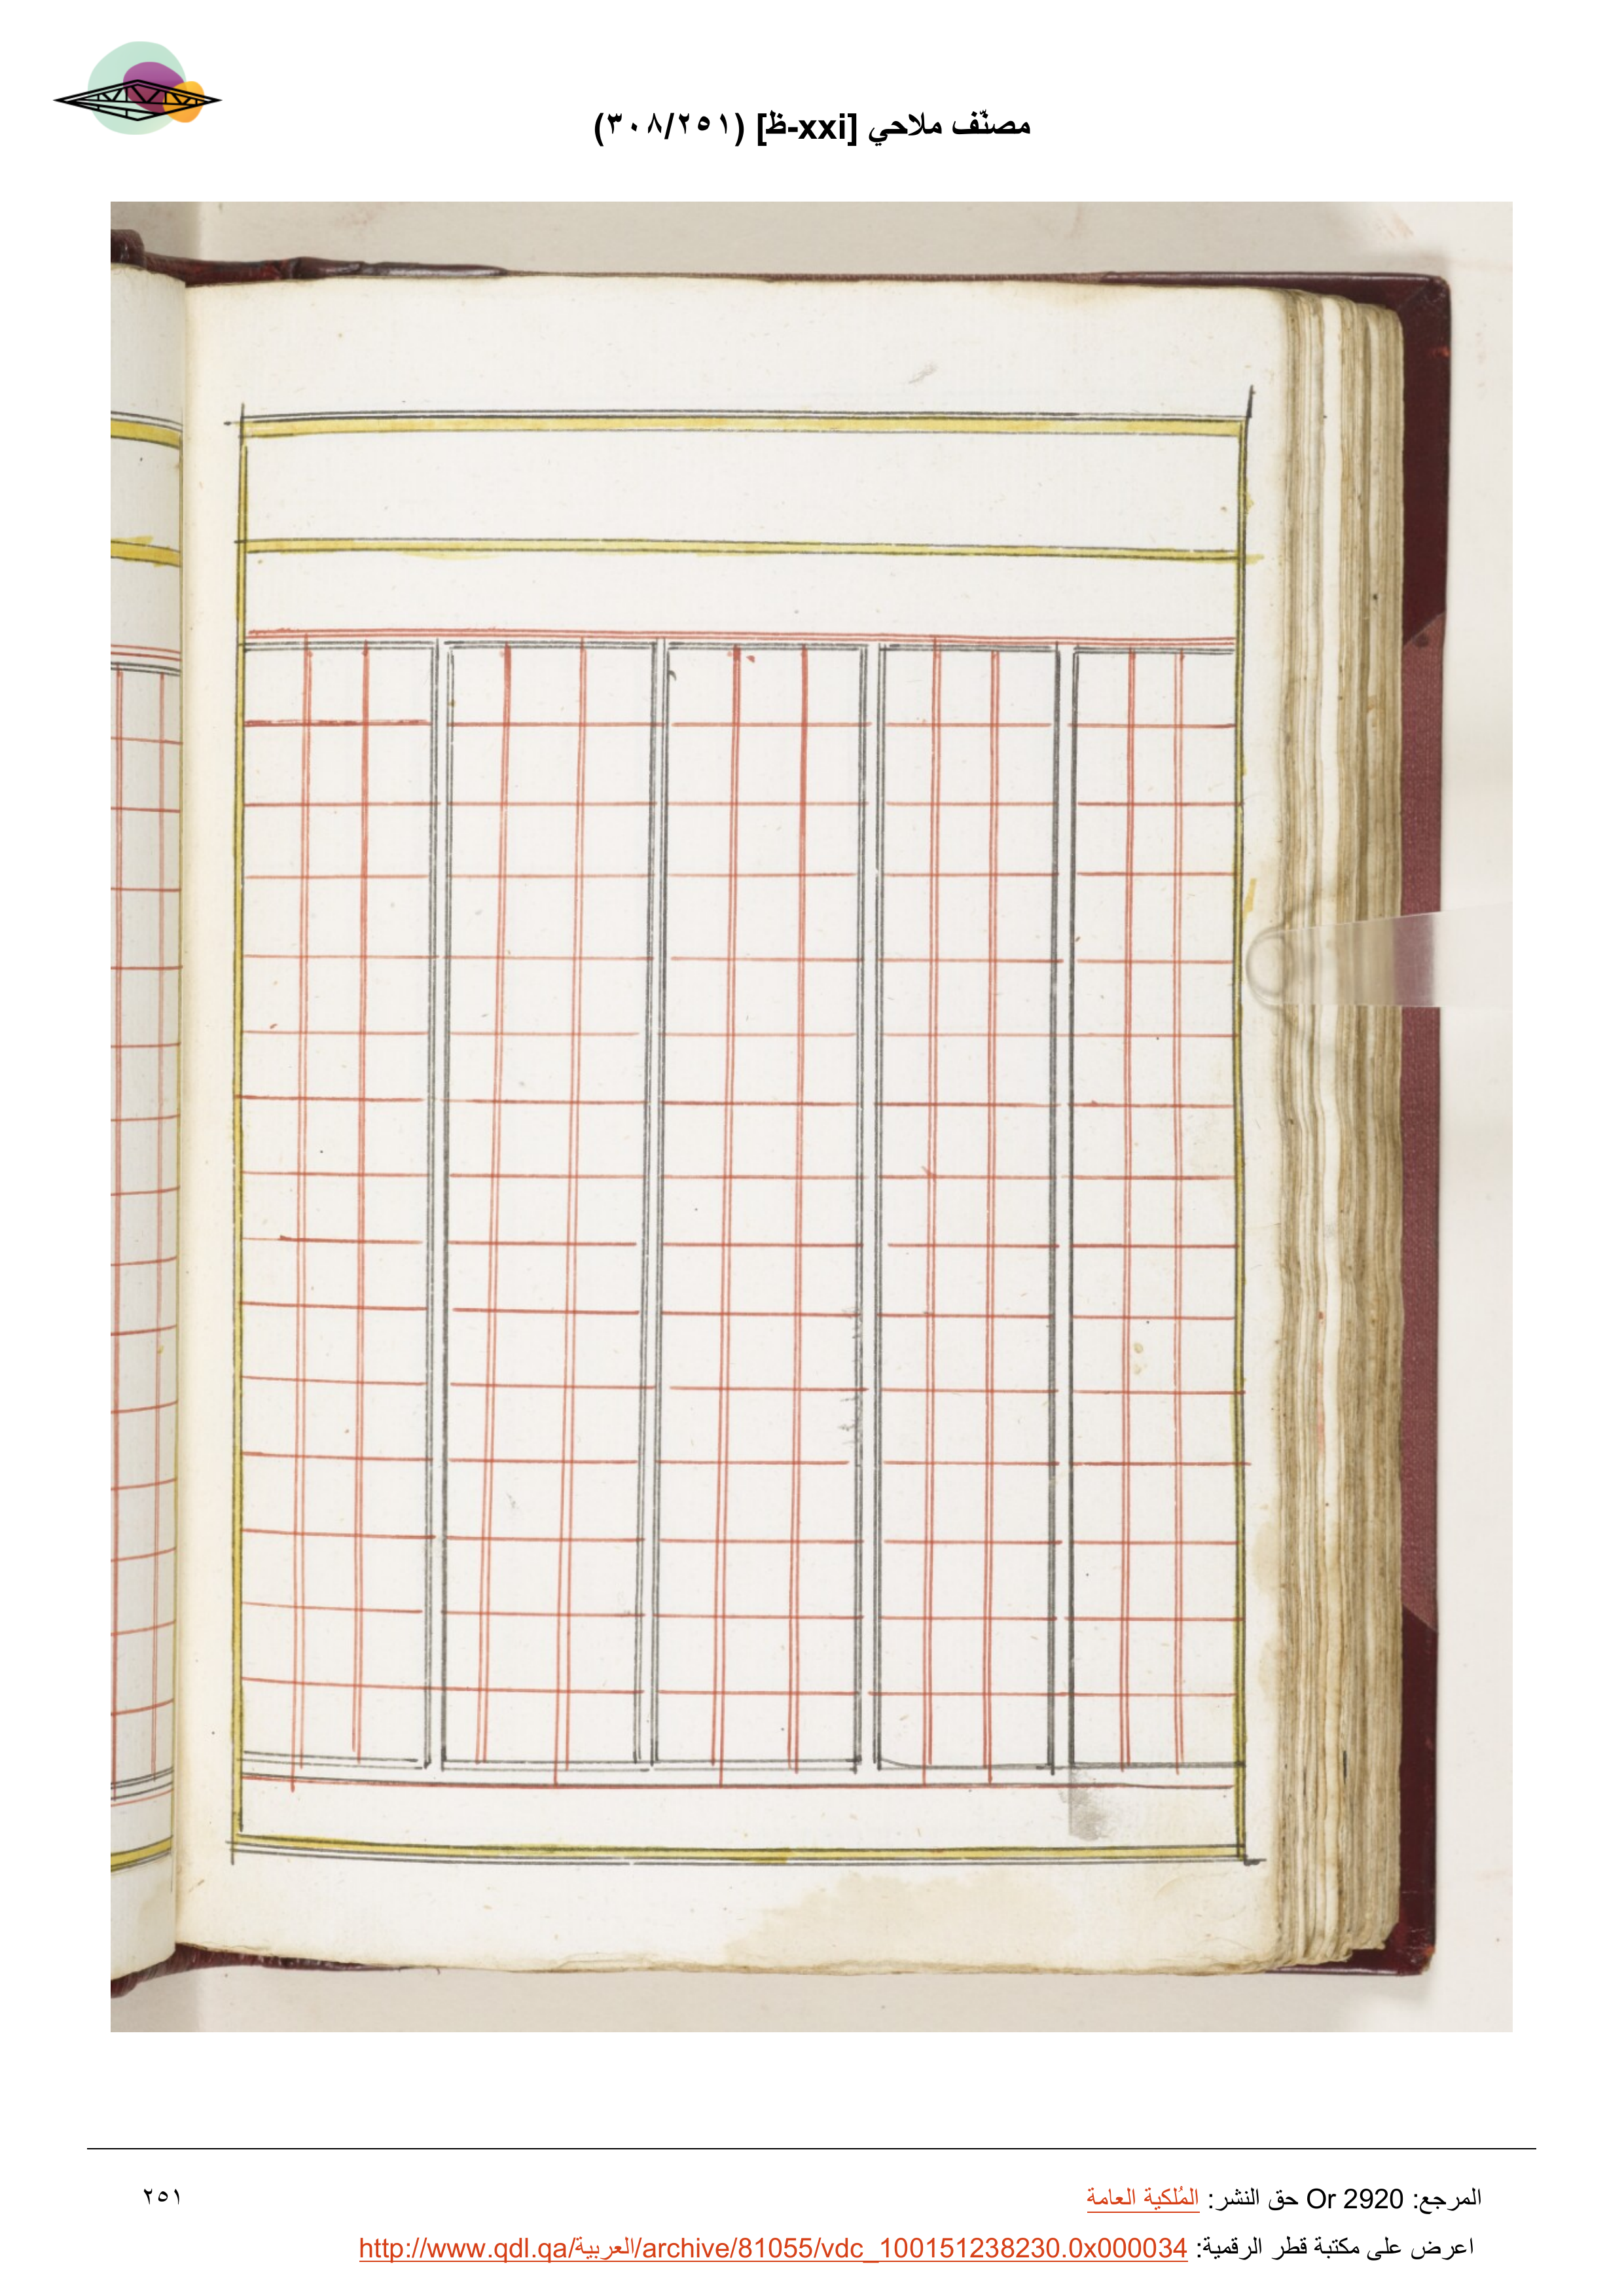 مصنّف ملاحي [xxi-ظ] (٣٠٨/٢٥١)
المرجع: Or 2920 حق النشر: المُلكية العامة
٢٥١
اعرض على مكتبة قطر الرقمية: http://www.qdl.qa/العربية/archive/81055/vdc_100151238230.0x000034